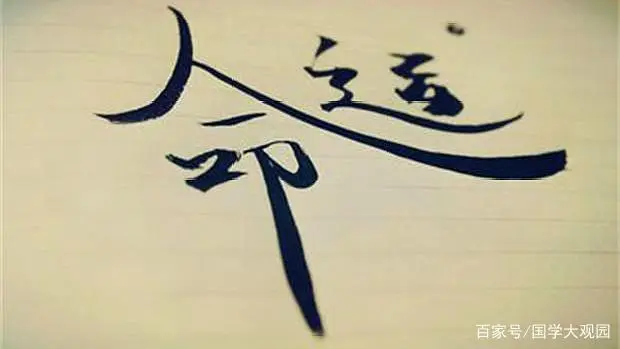 命运
百家号/国学大观园